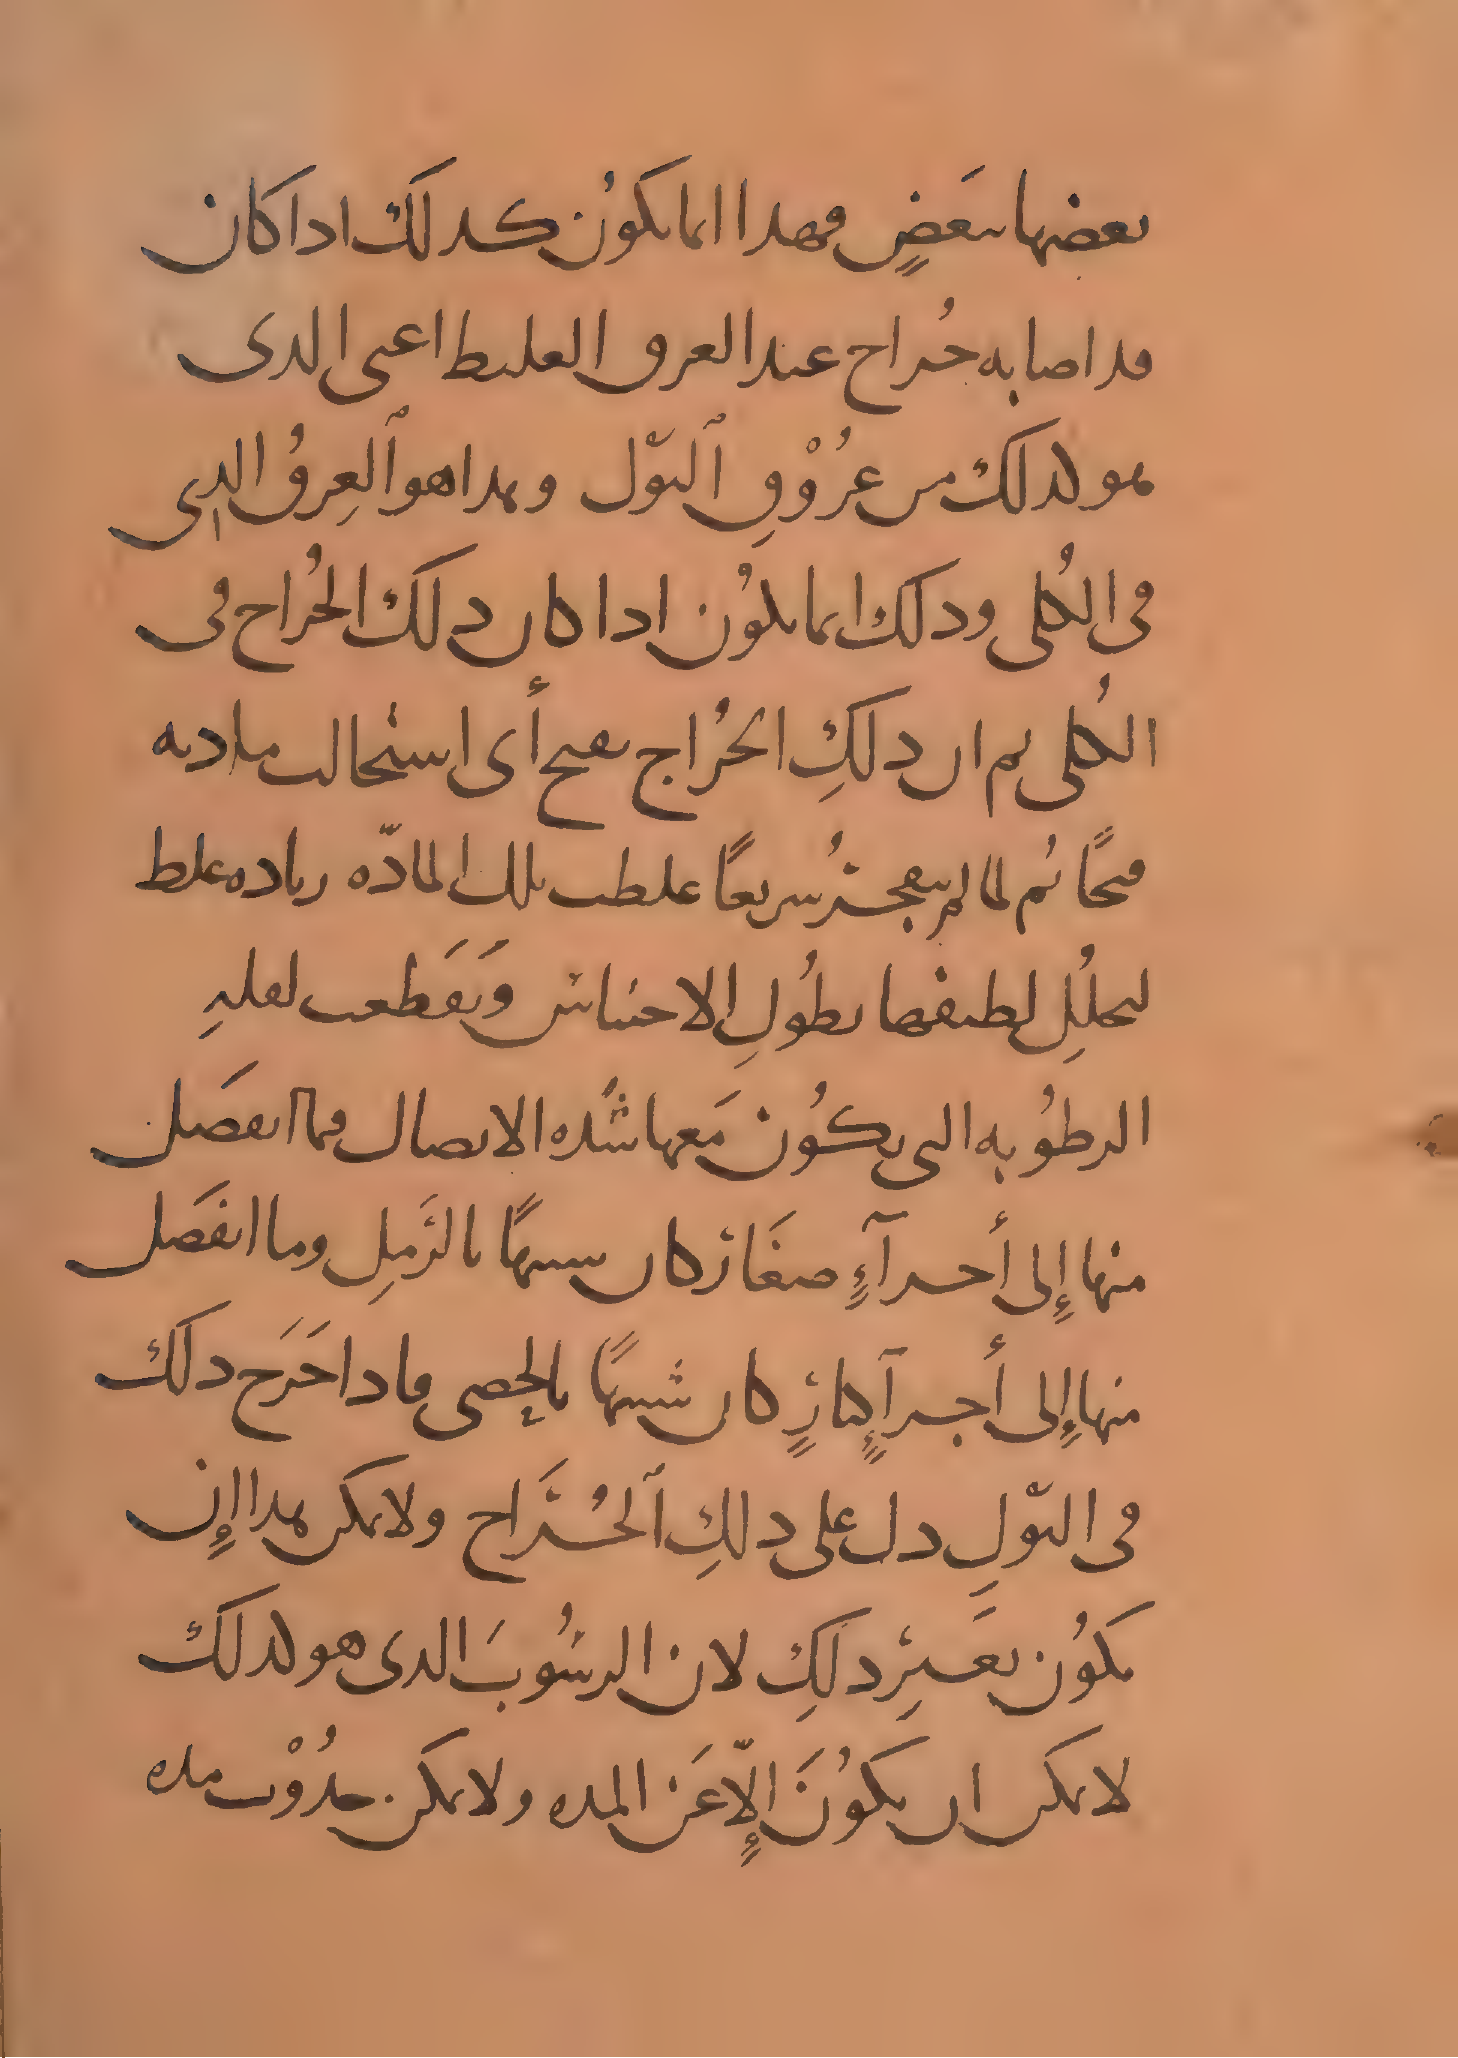 بعضها ببَعَضٍ فهذا انما يكوُن كذلك اذا كان
قد اصابه خُراج عند العرق الغليظ اعنى الذى
هو لذلك من عرُوْقِ ٱلبَوّل وهذا هو ٱلعِرقُ الذِى
فى الكُلى وذلك انما يكوُن اذا كان ذلك الخُراج فى
الكُلى ثم ان ذلكِ الخُراج نضج أى استحالت مادته
قيحًا ثُم لما لم ينفجرُ سريعًا غلظت تلك المادّه زياده غلظ
لتحلُلِ لطيفها بطُولِ الاحتباس وَتَقَطعت لقلهِ
الرطُوبه التى يكوُن مَعها شُده الاتصال فما انفصَل
منها إِلى أجزآءٍ صغَار كان شبيهًا بالرَملِ وما انفَصَل
منها إِلى أجزآءٍ كبارٍ كان شبيهًا بالحِصى فاذا خَرَج ذلك
فى البَوّلِ دل على ذلكِ ٱلخُرَّاج ولا يمكن هذا إِن
يكوُن بغَيرِ ذلكِ لان الرسُوبَ الذى هو لذلك
لا يمكن ان يكوُنَ إِلّا عَن المده ولا يمكن حدُوْث مده